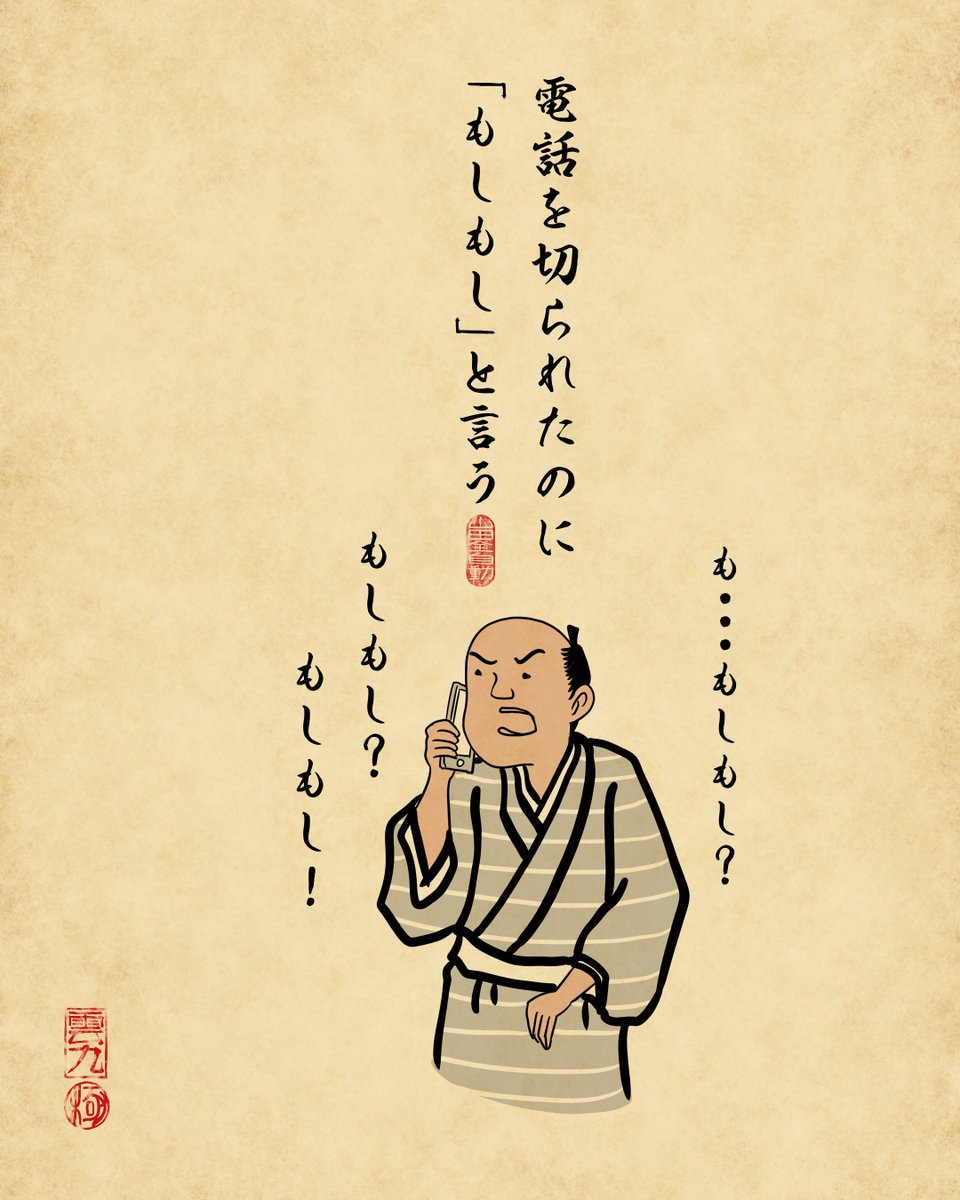 電話を切られたのに
「もしもし」と言う
も・・・もしもし?
もしもし?
もしもし!